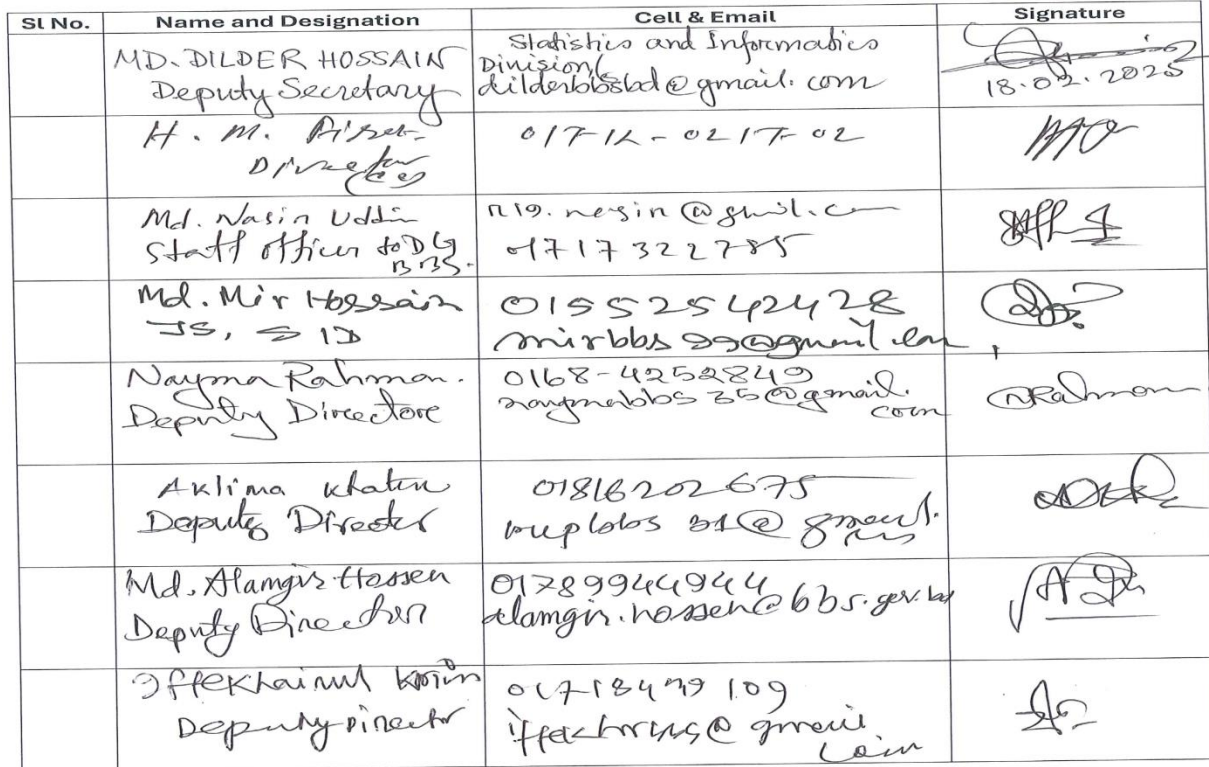 Sl No. Name and Designation Cell & Email Signature
MD. DILDER HOSSAIN
Deputy Secretary
Statistics and Informatics
Division
dilderbbsbd@gmail.com
18.02.2025
H. M.
Director
017-12-0217-02
Md. Nasin Uddin
Staff officer to DG
BBS.
01717322785
Md. Mir Hossain
JS, SID
01552542428
mirbbs
Nayma Rahman.
Deputy Directore
0168-4252849
naymabbs35@gmail.
com
NRahman
Aklima Khatun
Deputy Director
01816202675
Md. Alamgir Hossen
Deputy Director
01789944944
alamgir.hossen@bbs.gov.bd
Iftekhairul Karim
Deputy Director